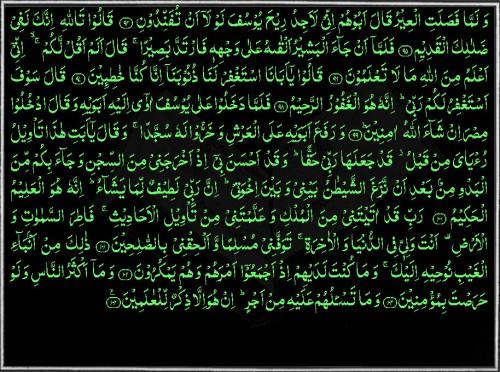 وَ لَمَّا فَصَلَتِ الْعِيْرُ قَالَ اَبُوْهُمْ اِنِّيْ لَاَجِدُ رِيْحَ يُوْسُفَ لَوْ لَاۤ اَنْ تُفَنِّدُوْنِ ﴿۹۴﴾ قَالُوْا تَاللّٰهِ اِنَّكَ لَفِيْ
ضَلٰلِكَ الْقَدِيْمِ ﴿۹۵﴾ فَلَمَّاۤ اَنْ جَآءَ الْبَشِيْرُ اَلْقٰىهُ عَلٰى وَجْهِهٖ فَارْتَدَّ بَصِيْرًا ۚ قَالَ اَلَمْ اَقُلْ لَّكُمْ ۚۙ اِنِّيْۤ
اَعْلَمُ مِنَ اللّٰهِ مَا لَا تَعْلَمُوْنَ ﴿۹۶﴾ قَالُوْا يٰۤاَبَانَا اسْتَغْفِرْ لَنَا ذُنُوْبَنَاۤ اِنَّا كُنَّا خٰطِـِٕيْنَ ﴿۹۷﴾ قَالَ سَوْفَ
اَسْتَغْفِرُ لَكُمْ رَبِّيْ ؕ اِنَّهٗ هُوَ الْغَفُوْرُ الرَّحِيْمُ ﴿۹۸﴾ فَلَمَّا دَخَلُوْا عَلٰى يُوْسُفَ اٰوٰۤى اِلَيْهِ اَبَوَيْهِ وَ قَالَ ادْخُلُوْا
مِصْرَ اِنْ شَآءَ اللّٰهُ اٰمِنِيْنَ ﴿۹۹﴾ وَ رَفَعَ اَبَوَيْهِ عَلَى الْعَرْشِ وَ خَرُّوْا لَهٗ سُجَّدًا ۚ وَ قَالَ يٰۤاَبَتِ هٰذَا تَاْوِيْلُ
رُءْيَايَ مِنْ قَبْلُ ؗ قَدْ جَعَلَهَا رَبِّيْ حَقًّا ؕ وَ قَدْ اَحْسَنَ بِيْۤ اِذْ اَخْرَجَنِيْ مِنَ السِّجْنِ وَ جَآءَ بِكُمْ مِّنَ
الْبَدْوِ مِنْۢ بَعْدِ اَنْ نَّزَغَ الشَّيْطٰنُ بَيْنِيْ وَ بَيْنَ اِخْوَتِيْ ؕ اِنَّ رَبِّيْ لَطِيْفٌ لِّمَا يَشَآءُ ؕ اِنَّهٗ هُوَ الْعَلِيْمُ
الْحَكِيْمُ ﴿۱۰۰﴾ رَبِّ قَدْ اٰتَيْتَنِيْ مِنَ الْمُلْكِ وَ عَلَّمْتَنِيْ مِنْ تَاْوِيْلِ الْاَحَادِيْثِ ۚ فَاطِرَ السَّمٰوٰتِ وَ
الْاَرْضِ ۟ اَنْتَ وَلِيّٖ فِي الدُّنْيَا وَ الْاٰخِرَةِ ۚ تَوَفَّنِيْ مُسْلِمًا وَّ اَلْحِقْنِيْ بِالصّٰلِحِيْنَ ﴿۱۰۱﴾ ذٰلِكَ مِنْ اَنْۢبَآءِ
الْغَيْبِ نُوْحِيْهِ اِلَيْكَ ۚ وَ مَا كُنْتَ لَدَيْهِمْ اِذْ اَجْمَعُوْۤا اَمْرَهُمْ وَ هُمْ يَمْكُرُوْنَ ﴿۱۰۲﴾ وَ مَاۤ اَكْثَرُ النَّاسِ وَ لَوْ
حَرَصْتَ بِمُؤْمِنِيْنَ ﴿۱۰۳﴾ وَ مَا تَسْـَٔلُهُمْ عَلَيْهِ مِنْ اَجْرٍ ؕ اِنْ هُوَ اِلَّا ذِكْرٌ لِّلْعٰلَمِيْنَ ﴿۱۰۴﴾